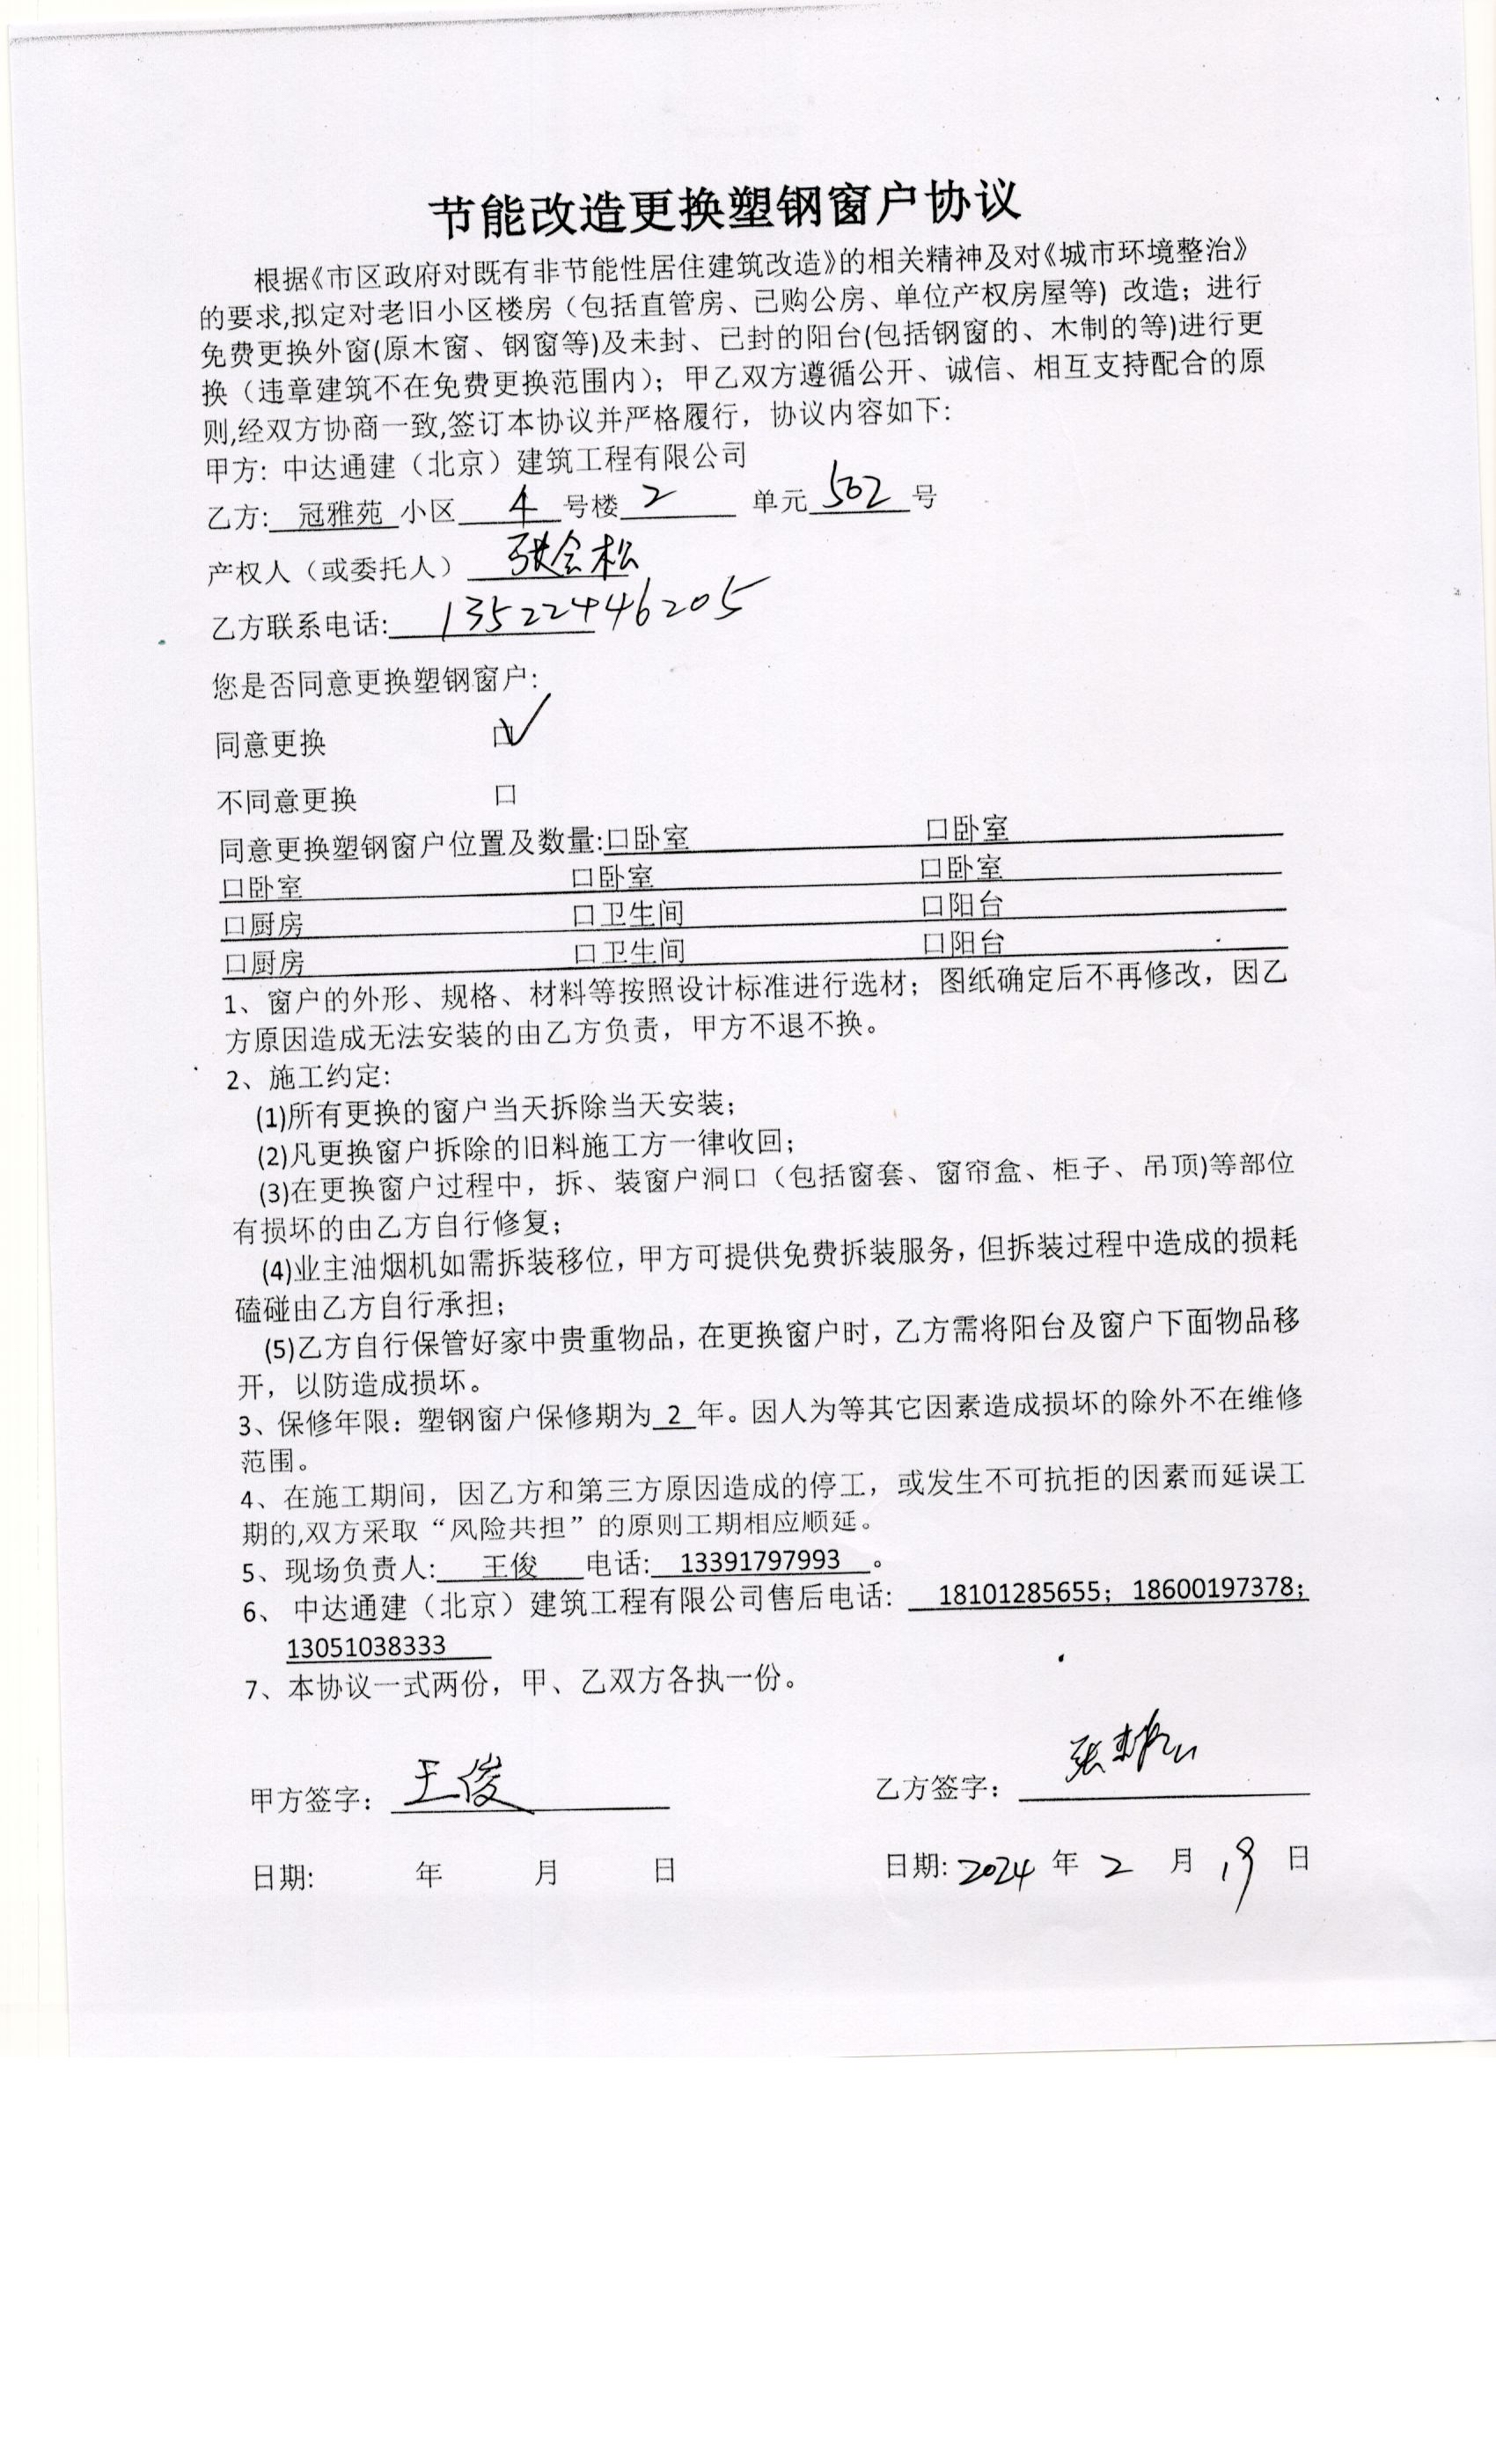 节能改造更换塑钢窗户协议
根据《市区政府对既有非节能性居住建筑改造》的相关精神及对《城市环境整治》
的要求,拟定对老旧小区楼房（包括直管房、已购公房、单位产权房屋等）改造；进行
免费更换外窗(原木窗、钢窗等)及未封、已封的阳台(包括钢窗的、木制的等)进行更
换（违章建筑不在免费更换范围内）；甲乙双方遵循公开、诚信、相互支持配合的原
则,经双方协商一致,签订本协议并严格履行，协议内容如下：
甲方: 中达通建（北京）建筑工程有限公司
乙方: 冠雅苑 小区 4 号楼 2 单元 502 号
产权人（或委托人） 张会松
乙方联系电话: 13522446205
您是否同意更换塑钢窗户：
同意更换 口√
不同意更换 口
同意更换塑钢窗户位置及数量:口卧室 口卧室
口卧室 口卧室 口卧室
口厨房 口卫生间 口阳台
口厨房 口卫生间 口阳台
1、窗户的外形、规格、材料等按照设计标准进行选材；图纸确定后不再修改，因乙
方原因造成无法安装的由乙方负责，甲方不退不换。
2、施工约定:
(1)所有更换的窗户当天拆除当天安装；
(2)凡更换窗户拆除的旧料施工方一律收回；
(3)在更换窗户过程中，拆、装窗户洞口（包括窗套、窗帘盒、柜子、吊顶)等部位
有损坏的由乙方自行修复；
(4)业主油烟机如需拆装移位，甲方可提供免费拆装服务，但拆装过程中造成的损耗
磕碰由乙方自行承担；
(5)乙方自行保管好家中贵重物品，在更换窗户时，乙方需将阳台及窗户下面物品移
开，以防造成损坏。
3、保修年限：塑钢窗户保修期为 2 年。因人为等其它因素造成损坏的除外不在维修
范围。
4、在施工期间，因乙方和第三方原因造成的停工，或发生不可抗拒的因素而延误工
期的,双方采取“风险共担”的原则工期相应顺延。
5、现场负责人: 王俊 电话: 13391797993 。
6、中达通建（北京）建筑工程有限公司售后电话: 18101285655；18600197378；
13051038333
7、本协议一式两份，甲、乙双方各执一份。
甲方签字： 王俊 乙方签字：
日期: 年 月 日 日期: 2024 年 2 月 19 日